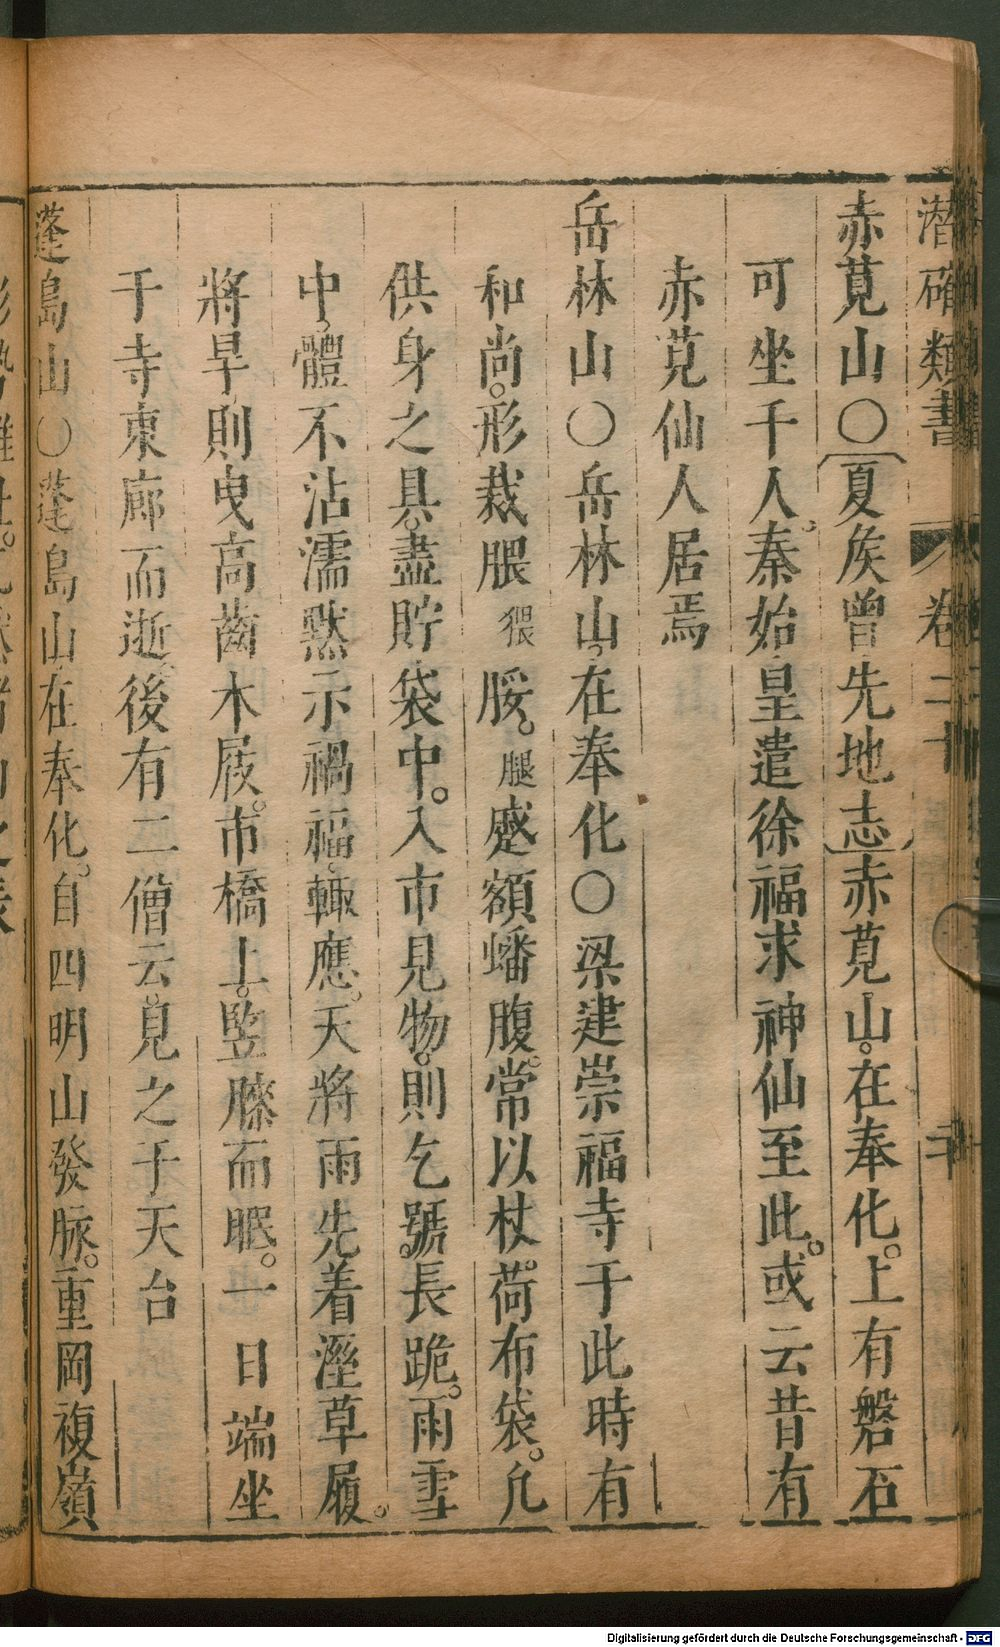 潛確類書 卷二十 二十
赤莧山○夏侯曾先地志赤莧山。在奉化。上有磐石
可坐千人。秦始皇遣徐福求神仙至此。或云昔有
赤莧仙人居焉
岳林山○岳林山。在奉化○梁建崇福寺于此時有
和尚。形裁腲猥脮。腿蹙額皤腹。常以杖。荷布袋。凡
供身之具。盡貯袋中。入市見物。則乞號。長跪。雨雪
中。體不沾濡黙示禍福。輙應。天將雨先着溼草履。
將旱則曳高齒木屐。市橋上。竪膝而眠。一日端坐
于寺東廊而逝。後有二僧云。見之于天台
蓬島山○蓬島山在奉化。自四明山發脉。重岡複嶺
Digitalisierung gefördert durch die Deutsche Forschungsgemeinschaft - DFG